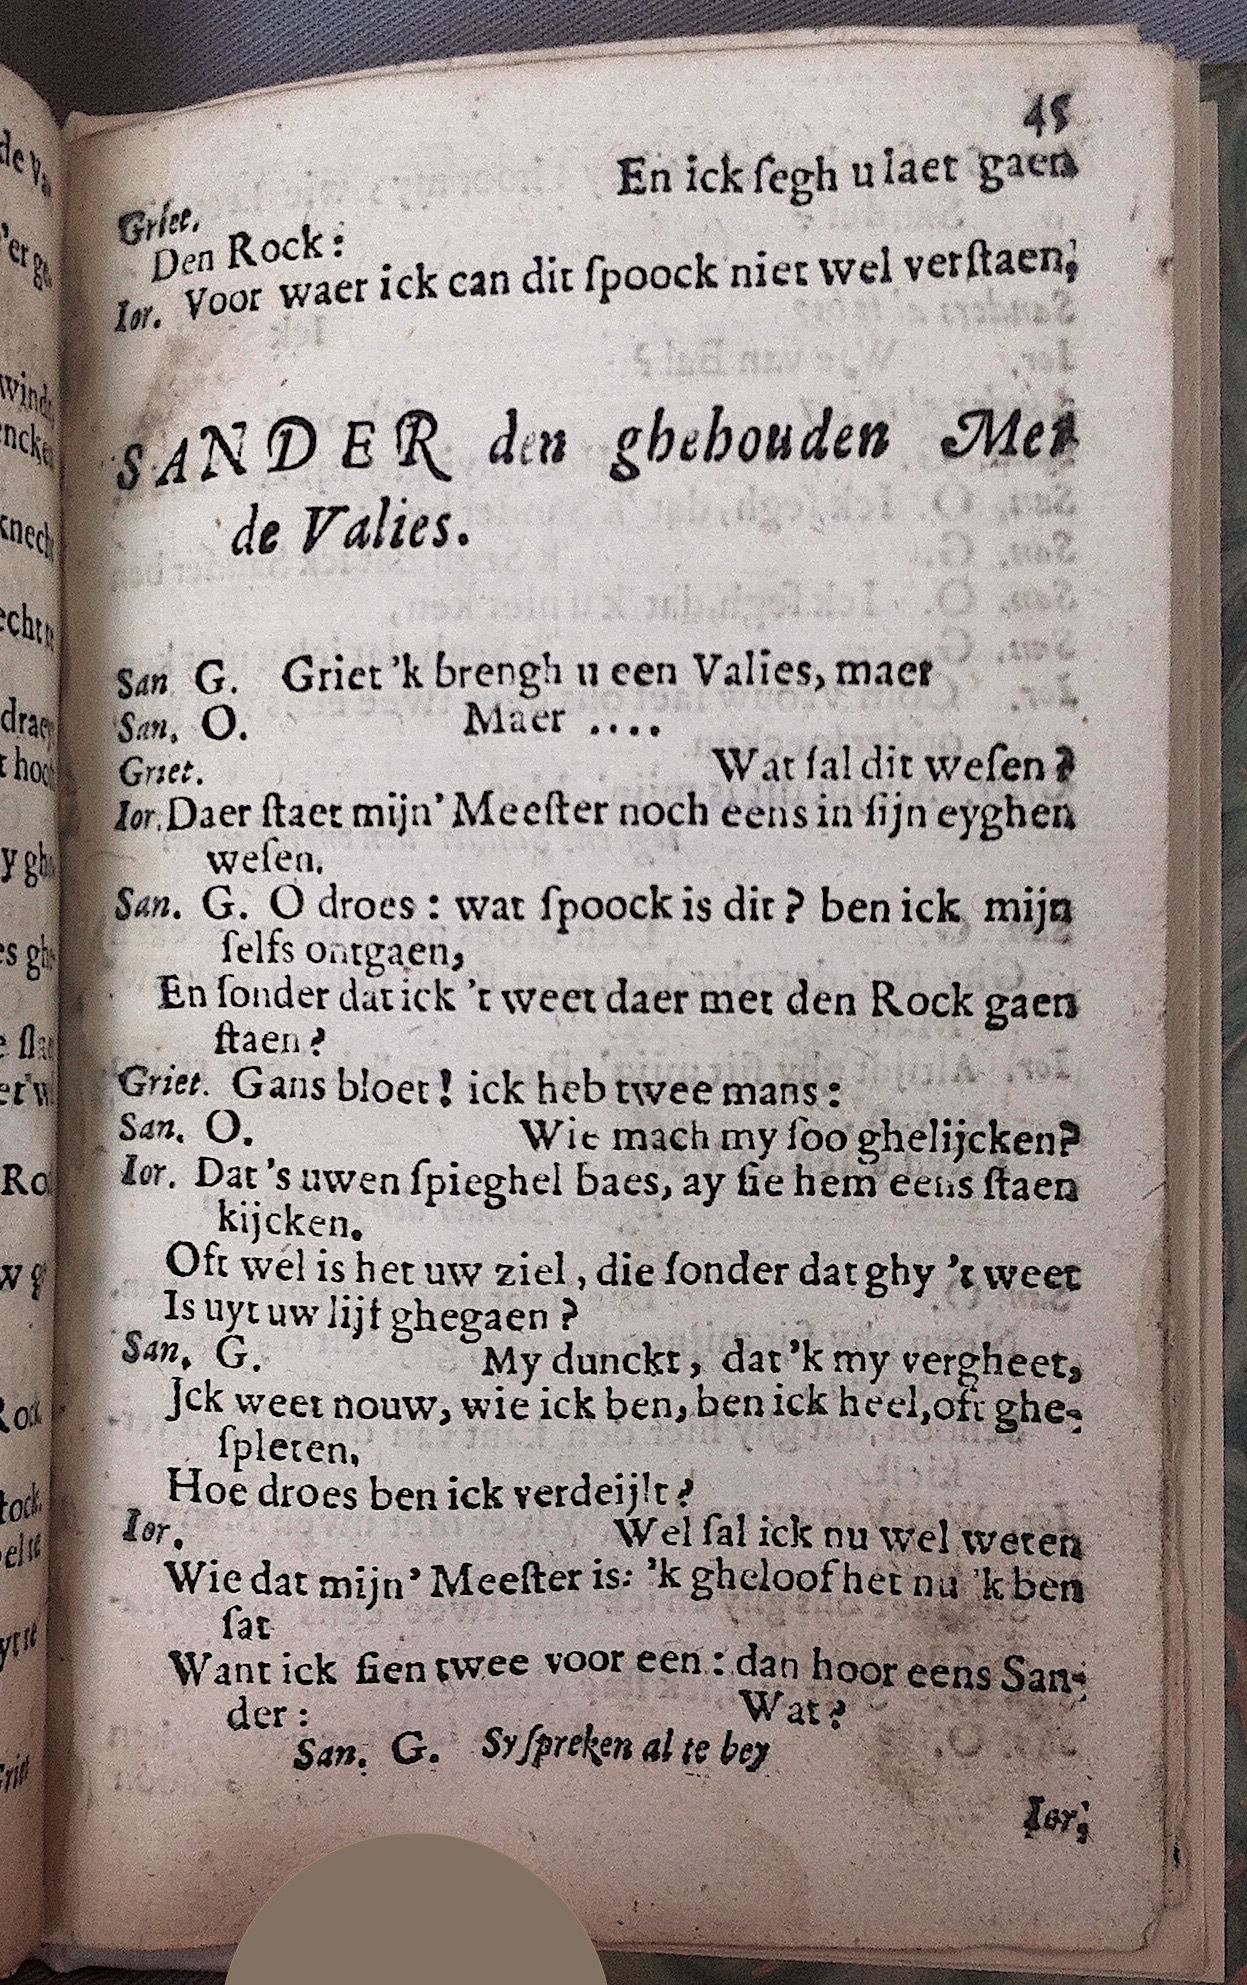 45
Griet. En ick ſegh u laet gaen
Den Rock:
Ior. Voor waer ick can dit ſpoock niet wel verſtaen,
SANDER den ghehouden Met
de Valies.
San G. Griet 'k brengh u een Valies, maer
San. O. Maer ....
Griet. Wat ſal dit weſen?
Ior. Daer ſtaet mijn' Meeſter noch eens in ſijn eyghen
weſen.
San. G. O droes: wat ſpoock is dit? ben ick mijn
ſelfs ontgaen,
En ſonder dat ick 't weet daer met den Rock gaen
ſtaen?
Griet. Gans bloet! ick heb twee mans:
San. O. Wie mach my ſoo ghelijcken?
Ior. Dat 's uwen ſpieghel baes, ay ſie hem eens ſtaen
kijcken.
Oft wel is het uw ziel, die ſonder dat ghy 't weet
Is uyt uw lijf ghegaen?
San. G. My dunckt, dat 'k my vergheet,
Jck weet nouw, wie ick ben, ben ick heel, oft ghe-
ſpleten,
Hoe droes ben ick verdeijlt?
Ior. Wel ſal ick nu wel weten
Wie dat mijn' Meeſter is: 'k gheloof het nu 'k ben
ſat
Want ick ſien twee voor een: dan hoor eens San-
der: Wat?
San. G. Sy ſpreken al te bey
Ior,